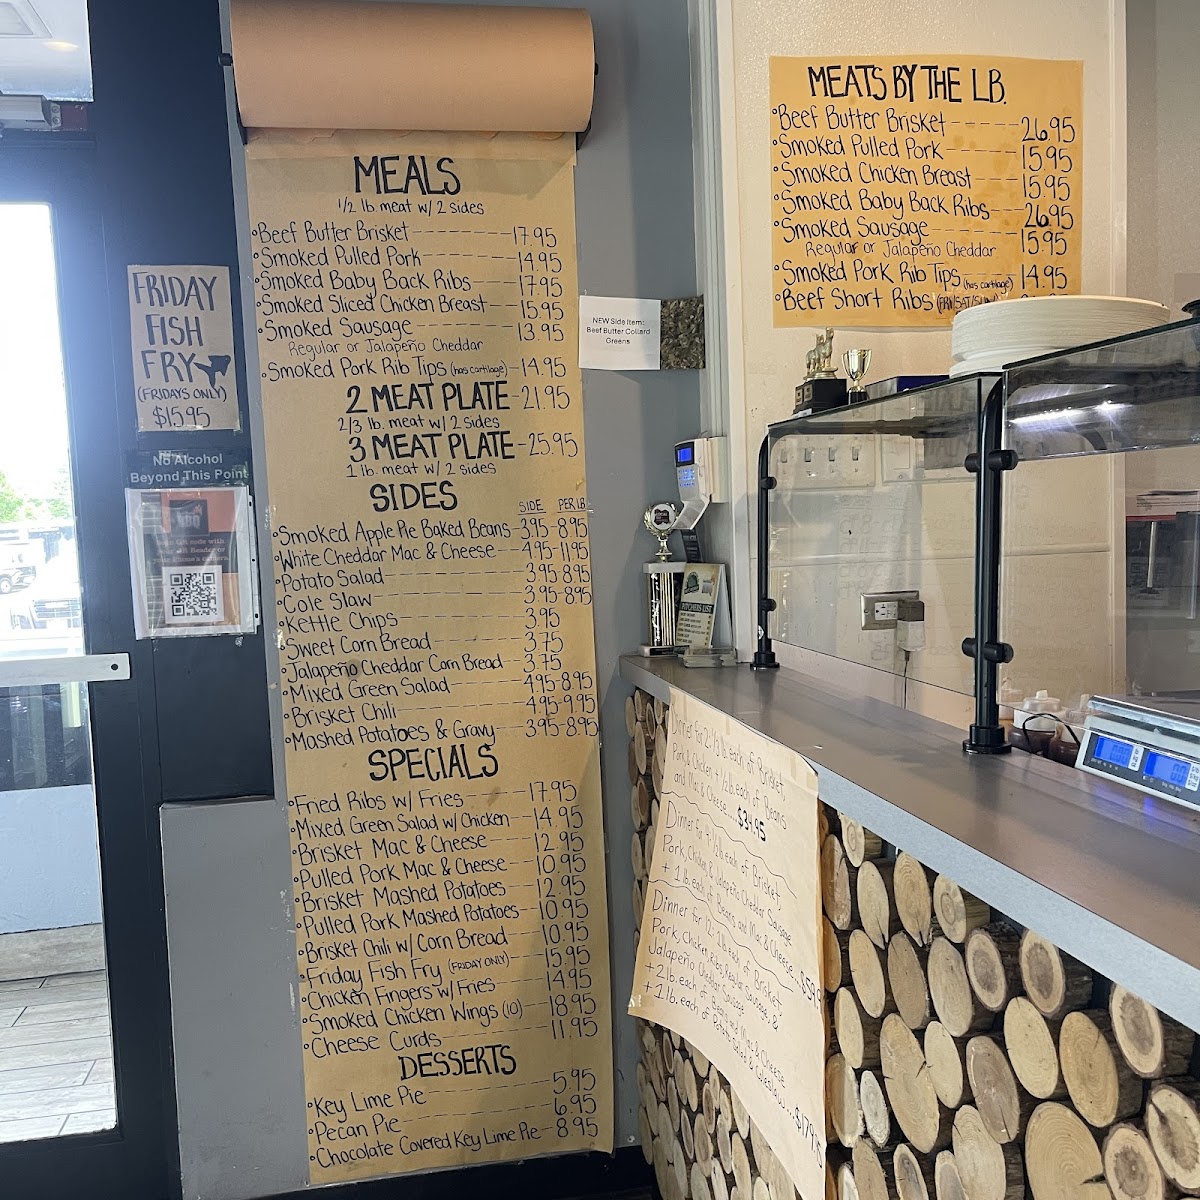 MEALS
1/2 lb. meat w/ 2 sides
•Beef Butter Brisket --- 17.95
•Smoked Pulled Pork --- 14.95
•Smoked Baby Back Ribs --- 17.95
•Smoked Sliced Chicken Breast --- 15.95
•Smoked Sausage --- 13.95
Regular or Jalapeño Cheddar
•Smoked Pork Rib Tips (has cartilage) - 14.95
2 MEAT PLATE - 21.95
2/3 lb. meat w/ 2 sides
3 MEAT PLATE - 25.95
1 lb. meat w/ 2 sides
SIDES
SIDE PER LB
•Smoked Apple Pie Baked Beans - 3.95 - 8.95
•White Cheddar Mac & Cheese --- 4.95 - 11.95
•Potato Salad --- 3.95 - 8.95
•Cole Slaw --- 3.95 - 8.95
•Kettle Chips --- 3.95
•Sweet Corn Bread --- 3.75
•Jalapeño Cheddar Corn Bread --- 3.75
•Mixed Green Salad --- 4.95 - 8.95
•Brisket Chili --- 4.95 - 9.95
•Mashed Potatoes & Gravy --- 3.95 - 8.95
SPECIALS
•Fried Ribs w/ Fries --- 17.95
•Mixed Green Salad w/ Chicken --- 14.95
•Brisket Mac & Cheese --- 12.95
•Pulled Pork Mac & Cheese --- 10.95
•Brisket Mashed Potatoes --- 12.95
•Pulled Pork Mashed Potatoes --- 10.95
•Brisket Chili w/ Corn Bread --- 10.95
•Friday Fish Fry (FRIDAY ONLY) --- 15.95
•Chicken Fingers w/ Fries --- 14.95
•Smoked Chicken Wings (10) --- 18.95
•Cheese Curds --- 11.95
DESSERTS
•Key Lime Pie --- 5.95
•Pecan Pie --- 6.95
•Chocolate Covered Key Lime Pie - 8.95
FRIDAY
FISH
FRY
(FRIDAYS ONLY)
$15.95
No Alcohol
Beyond This Point
NEW Side Item:
Beef Butter Collard
Greens
MEATS BY THE LB.
•Beef Butter Brisket --- 26.95
•Smoked Pulled Pork --- 15.95
•Smoked Chicken Breast --- 15.95
•Smoked Baby Back Ribs --- 26.95
•Smoked Sausage --- 15.95
Regular or Jalapeño Cheddar
•Smoked Pork Rib Tips (has cartilage) - 14.95
•Beef Short Ribs
PITCHERS LIST
Dinner for 2- 1/3 lb. each of Brisket
Pork, & Chicken + 1/2 lb. each of Beans
and Mac & Cheese.... $34.95
Dinner for 4- 1/2 lb. each of Brisket,
Pork, Chicken, & Jalapeño Cheddar Sausage
+ 1 lb. each of Beans and Mac & Cheese
Dinner for 12- 1 lb. each of Brisket
Pork, Chicken, Ribs, Regular Sausage, &
Jalapeño Cheddar Sausage
+ 2 lb. each of Beans and Mac & Cheese
+ 1 lb. each of Potato Salad & Coleslaw